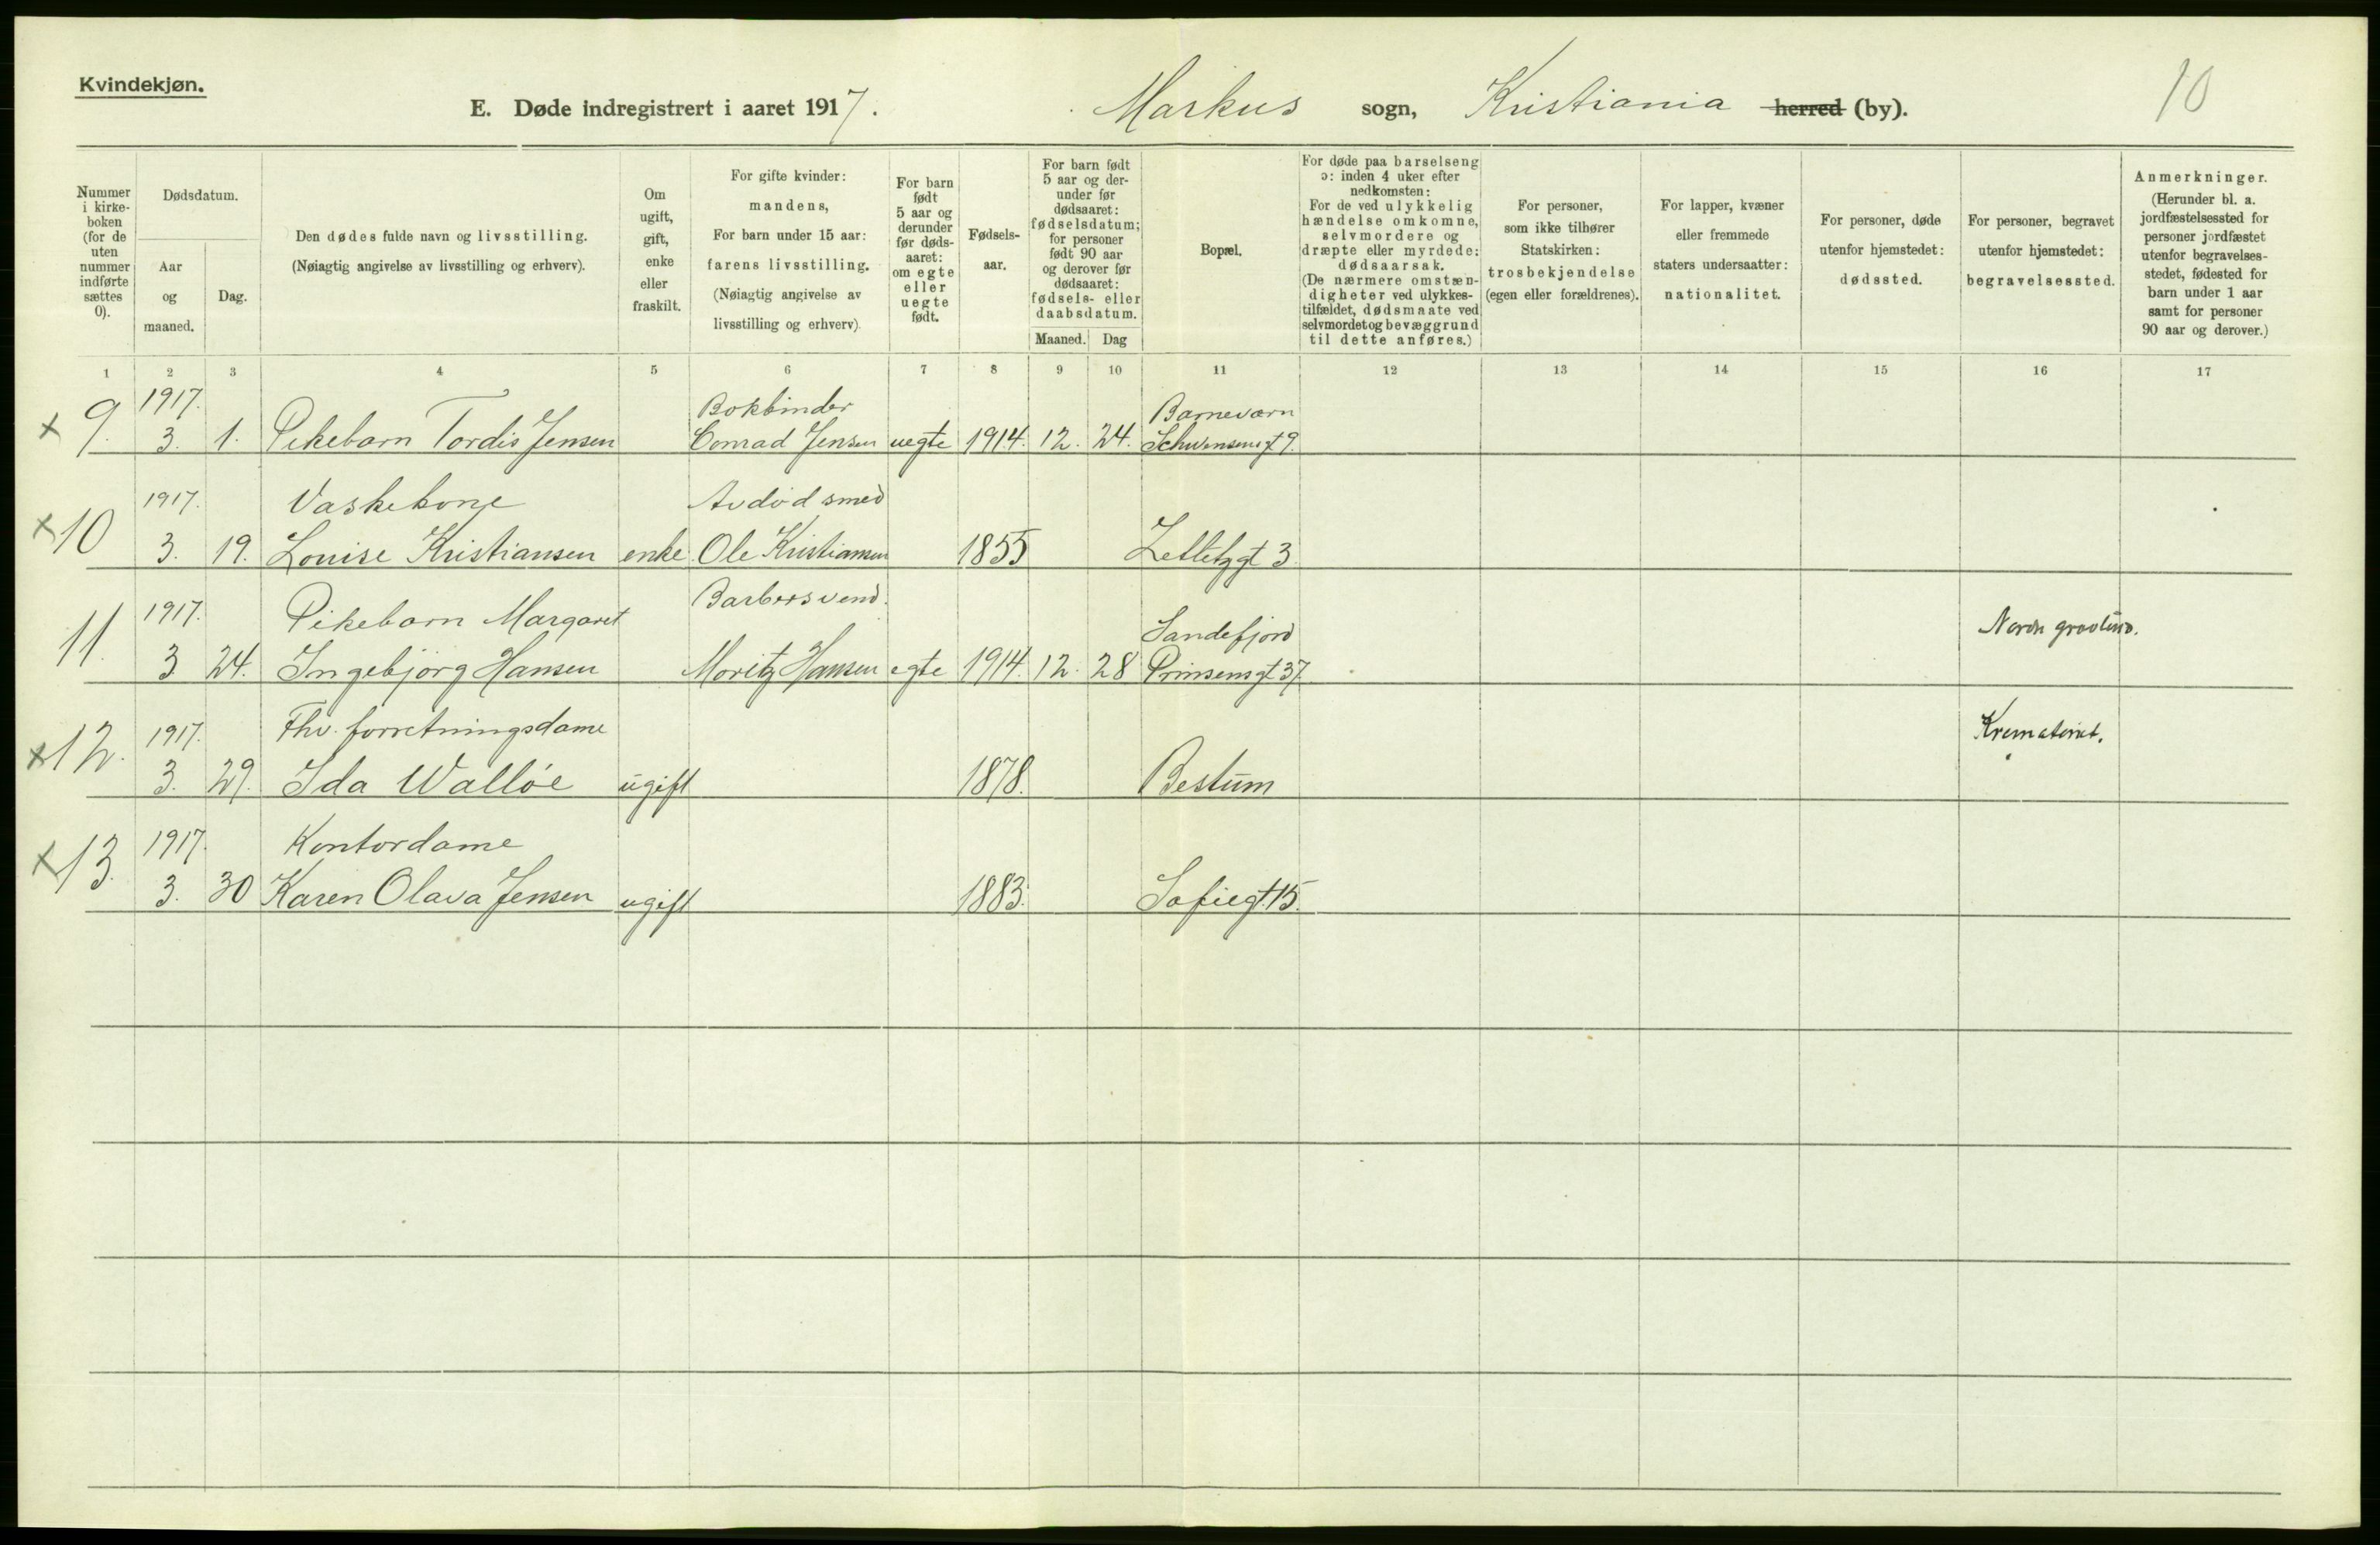 Kvindekjøn.
E. Døde indregistrert i aaret 1917. Markus sogn, Kristiania herred (by). 10
Nummer i kirkeboken (for de uten nummer indførte sættes 0).
Dødsdatum.
Aar og maaned.
Dag.
Den dødes fulde navn og livsstilling.
(Nøiagtig angivelse av livsstilling og erhverv).
Om ugift, gift, enke eller fraskilt.
For gifte kvinder:
mandens,
For barn under 15 aar:
farens livsstilling.
(Nøiagtig angivelse av
livsstilling og erhverv).
For barn født 5 aar og derunder før dødsaaret: om egte eller uegte født.
Fødselsaar.
For barn født 5 aar og derunder før dødsaaret: fødselsdatum; for personer født 90 aar og derover før dødsaaret: fødsels- eller daabsdatum.
Maaned. Dag
Bopæl.
For døde paa barselseng
ɔ: inden 4 uker efter
nedkomsten:
For de ved ulykkelig
hændelse omkomne,
selvmordere og
dræpte eller myrdede:
dødsaarsak.
(De nærmere omstæn-
digheter ved ulykkes-
tilfældet, dødsmaate ved
selvmordet og bevæggrund
til dette anføres.)
For personer,
som ikke tilhører
Statskirken:
trosbekjendelse
(egen eller forældrenes).
For lapper, kvæner
eller fremmede
staters undersaatter:
nationalitet.
For personer, døde
utenfor hjemstedet:
dødssted.
For personer, begravet
utenfor hjemstedet:
begravelsessted.
Anmerkninger.
(Herunder bl. a.
jordfæstelsessted for
personer jordfæstet
utenfor begravelses-
stedet, fødested for
barn under 1 aar
samt for personer
90 aar og derover.)
1 2 3 4 5 6 7 8 9 10 11 12 13 14 15 16 17
1917. Bokbinder Barneværn
x 9. 3. 1. Pikebarn Tordis Jensen Conrad Jensen uegte 1914. 12. 24. Schwensensgt 9.
1917. Vaskekone Avdød smed
x 10 3. 19. Louise Kristiansen enke Ole Kristiansen 1855 Zetlitzgt 3
1917. Pikebarn Margaret Barbersvend. Sandefjord Nordr gravlund.
11. 3 24. Ingebjørg Hansen Moritz Hansen egte 1914. 12. 28 Prinsensgt 37.
1917. Fhv. forretningsdame Krematoriet.
x 12. 3. 29. Ida Walløe ugift 1878. Bestum
1917. Kontordame
x 13. 3. 30 Karen Olava Jensen ugift 1883. Sofiegt. 15.